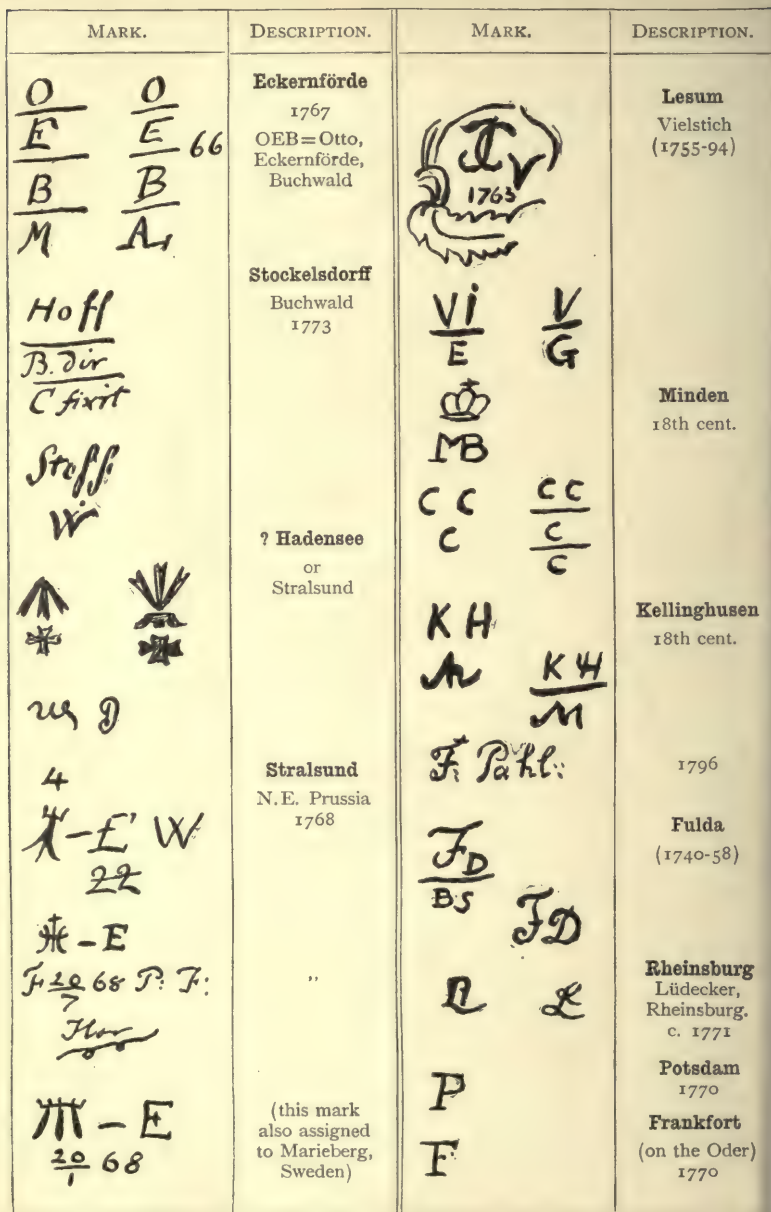 MARK.
DESCRIPTION.
O O
E E 66
B B
M A
Eckernförde
1767
OEB=Otto,
Eckernförde,
Buchwald
Hoff
B. dir
C fixit
Stockelsdorff
Buchwald
1773
Stoff
W
? Hadensee
or
Stralsund
D
4
Stralsund
N.E. Prussia
1768
-E W
22
-E
F: 20/7 68 P: F:
"
- E
20/1 68
(this mark
also assigned
to Marieberg,
Sweden)
MARK.
DESCRIPTION.
1763
Lesum
Vielstich
(1755-94)
Vi V
E G
MB
Minden
18th cent.
C C CC
C C
C
K H
KH
M
Kellinghusen
18th cent.
F: Pahl:
1796
FD
BS
FD
Fulda
(1740-58)
Rheinsburg
Lüdecker,
Rheinsburg.
c. 1771
P
Potsdam
1770
F
Frankfort
(on the Oder)
1770